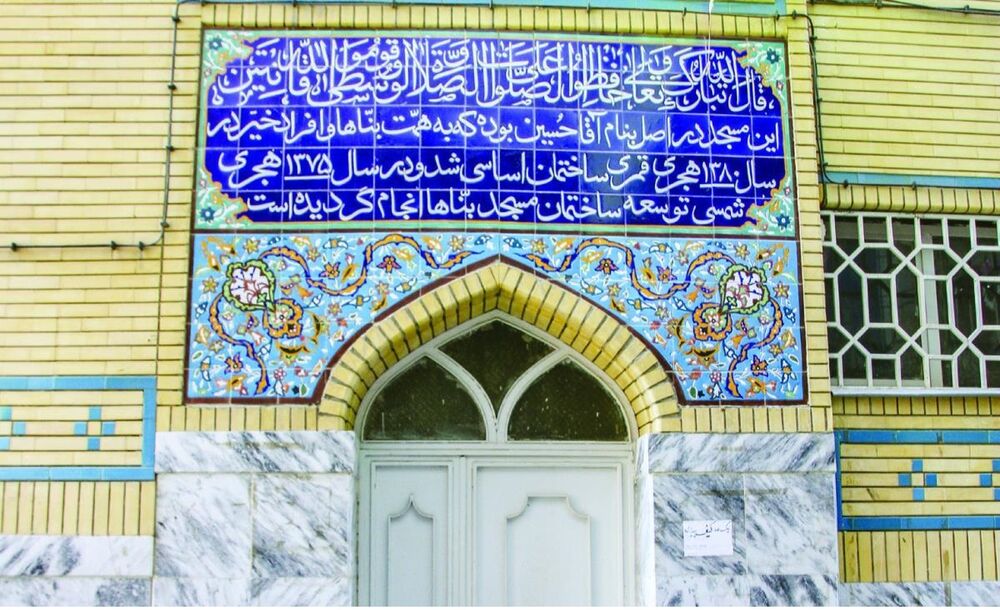 قال الله تبارک و تعالی حافظوا علی الصلوات و الصلاة الوسطی و قوموا لله قانتین
این مسجد در اصل بنام آقا حسین بوده که به همت بنّاها و افراد خیر در
سال ۱۳۸۰ هجری قمری ساختمان اساسی شد و در سال ۱۳۷۵ هجری
شمسی توسعه ساختمان مسجد بنّاها انجام گردیده است